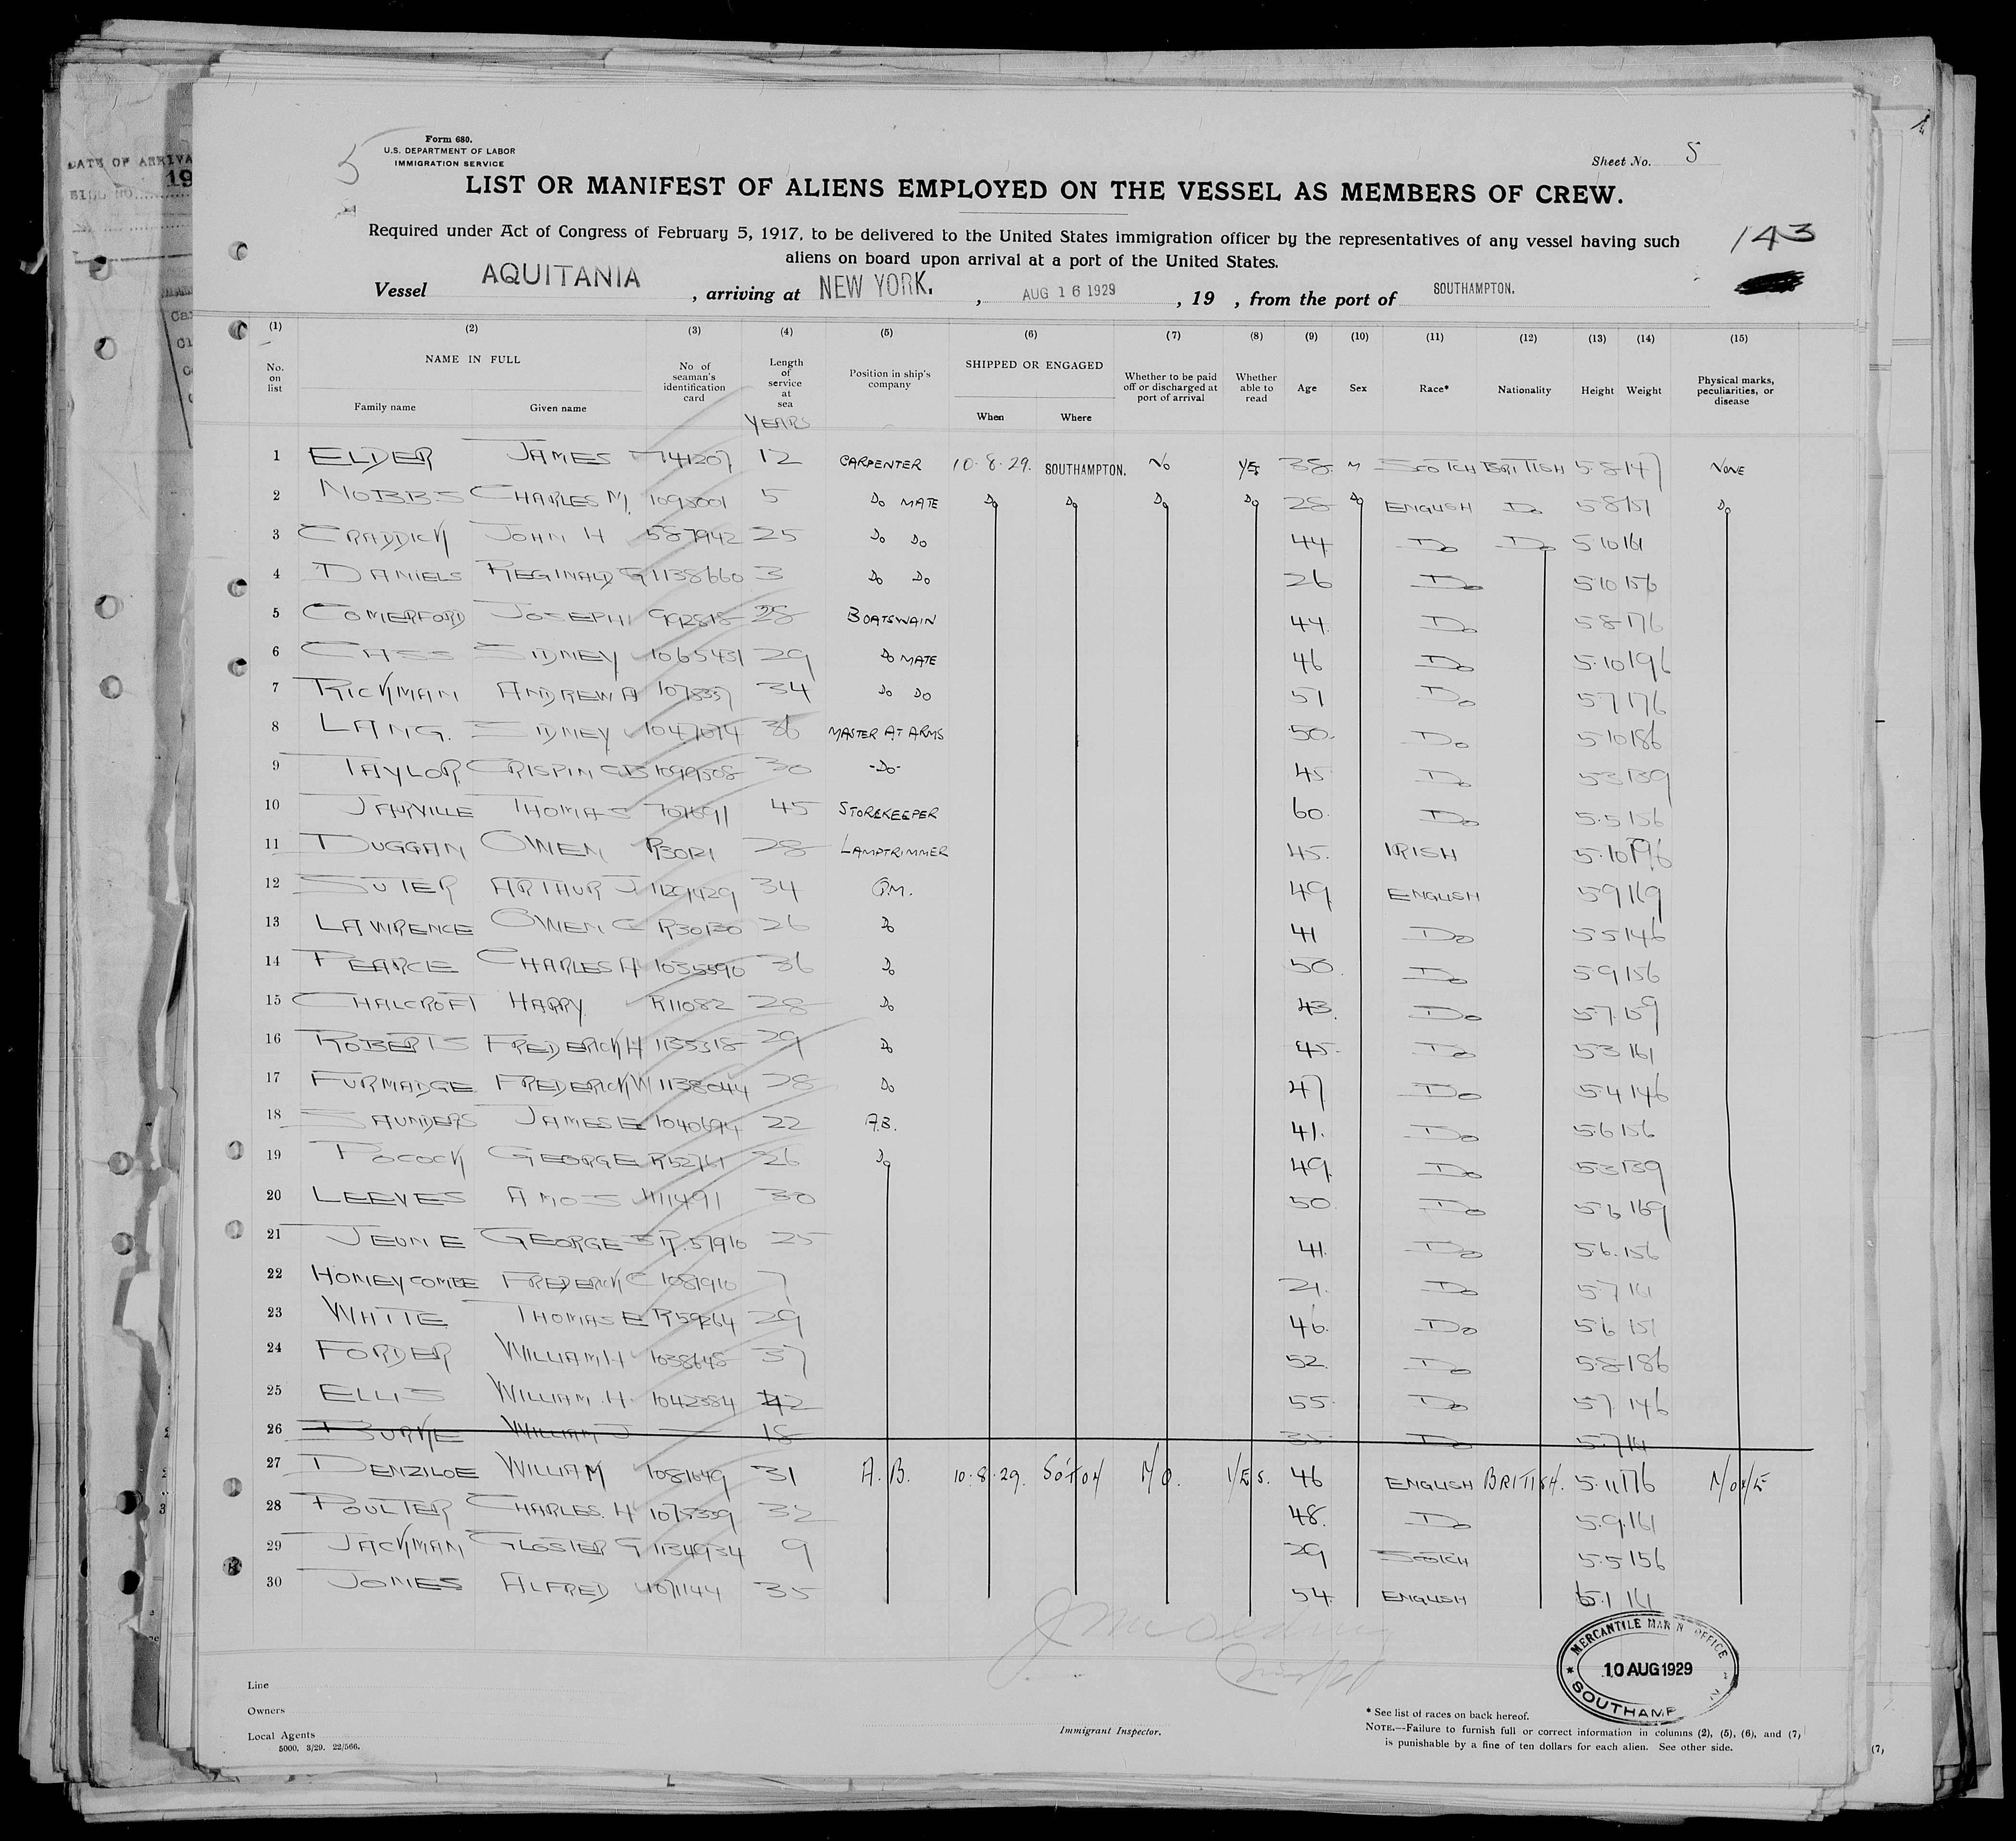 DATE OF ARRIVA
19
Form 680.
U.S. DEPARTMENT OF LABOR
IMMIGRATION SERVICE
5
Sheet No. 5
LIST OR MANIFEST OF ALIENS EMPLOYED ON THE VESSEL AS MEMBERS OF CREW.
Required under Act of Congress of February 5, 1917, to be delivered to the United States immigration officer by the representatives of any vessel having such
aliens on board upon arrival at a port of the United States.
143
Vessel AQUITANIA, arriving at NEW YORK., AUG 16 1929, 19 , from the port of SOUTHAMPTON.
(1) (2) (3) (4) (5) (6) (7) (8) (9) (10) (11) (12) (13) (14) (15)
No. on list NAME IN FULL Family name Given name No of seaman's identification card Length of service at sea YEARS Position in ship's company SHIPPED OR ENGAGED When Where Whether to be paid off or discharged at port of arrival Whether able to read Age Sex Race* Nationality Height Weight Physical marks, peculiarities, or disease
1 ELDER JAMES 741207 12 CARPENTER 10.8.29. SOUTHAMPTON. No YES 38 M SCOTCH BRITISH 5.8 147 NONE
2 NOBBS CHARLES M. 1095001 5 Do MATE Do Do Do Do 28 Do ENGLISH Do 5 8 151 Do
3 CRADDICK JOHN H 587942 25 Do Do 44 Do Do 5 10 161
4 DANIELS REGINALD G 1138660 3 Do Do 26 Do 5.10 156
5 COMERFORD JOSEPH 992818 28 BOATSWAIN 44 Do 5 8 176
6 CASS SIDNEY 1065431 29 Do MATE 46 Do 5.10 196
7 RICKMAN ANDREW A 34 Do Do 51 Do 5 7 176
8 LANG. SIDNEY 36 MASTER AT ARMS 50. Do 5 10 186
9 TAYLOR CRISPIN 30 -Do- 45 Do 5 3 139
10 THOMAS 45 STOREKEEPER 60. Do 5.5 156
11 DUGGAN OWEN R30121 28 LAMPTRIMMER 45. IRISH 5.10 196
12 SUTER ARTHUR J 1129429 34 Q.M. 49 ENGLISH 5 9 169
13 LAWRENCE OWEN C R30130 26 Do 41 Do 5 5 146
14 PEARCE CHARLES A 1035590 36 Do 50. Do 5.9 156
15 CHALCROFT HARRY R11082 28 Do 43. Do 5.7. 159
16 ROBERTS FREDERICK H 1135318 29 Do 45. Do 5 3 161
17 FURMADGE FREDERICK W 1138044 28 Do 47 Do 5.4 146
18 SAUNDERS JAMES E 1040694 22 A.B. 41. Do 5.6 156
19 POCOCK GEORGE R52761 26 Do 49. Do 5.3 139
20 LEEVES AMOS 1111491 30 50 Do 5.6 169
21 JEUNE GEORGE R.57910 25 41. Do 5.6. 156
22 HONEYCOMBE FREDERICK C 1081910 7 21. Do 5 7 161
23 WHITE THOMAS E R59264 29 46. Do 5 6 151
24 FORDER WILLIAM H 1038648 37 52. Do 5.8 186
25 ELLIS WILLIAM H. 1042384 42 55. Do 5 7 146
26 BURKE WILLIAM J — 18 35 Do 5.7 161
27 DENZILOE WILLIAM 1081649 31 A.B. 10.8.29. SO'TON NO. YES. 46 ENGLISH BRITISH. 5.11 176 NONE
28 POULTER CHARLES. H 1075339 32 48. Do 5.9. 161
29 JACKMAN GLOSTER G 1134934 9 29 SCOTCH 5.5 156
30 JONES ALFRED 1071144 35 54. ENGLISH 5.1 161
MERCANTILE MARIN OFFICE
10 AUG 1929
SOUTHAMP
Line
Owners
Local Agents
5000. 3/29. 22/566.
Immigrant Inspector.
* See list of races on back hereof.
NOTE.—Failure to furnish full or correct information in columns (2), (5), (6), and (7),
is punishable by a fine of ten dollars for each alien. See other side.
(7,